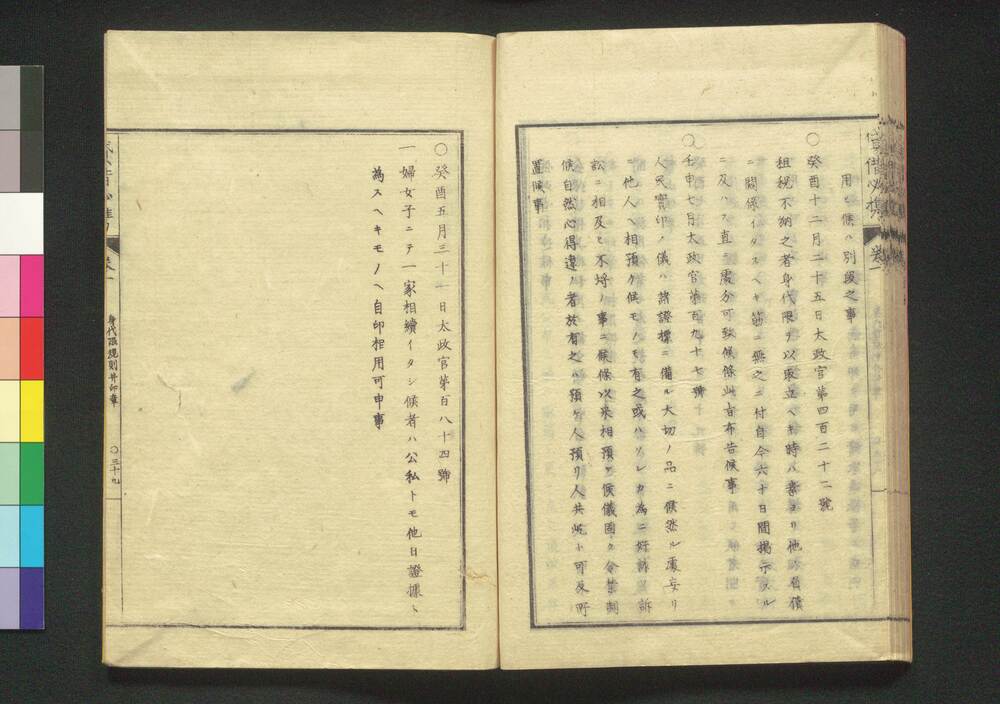 用ヒ候ハ別段之事
○癸酉十二月二十五日太政官第四百二十二號
租税不納之者身代限ヲ以取立ヘキ時ハ素ヨリ他ノ負債
ニ關係イタスヘキ筋ニ無之ニ付自今六十日間揭示スル
ニ及ハス直ニ處分可致候條此旨布告候事
○壬申七月太政官第百九十七號
人民實印ノ儀ハ諸證標ニ備ル大切ノ品ニ候然ル處妄リ
ニ他人ヘ相預ケ候モノモ有之或ハソレカ為ニ奸詐訴
訟ニ相及ヒ不埒ノ事ニ候條以來相預ケ候儀固ク令禁制
候自然心得違ノ者於有之ハ預ケ人預リ人共屹ト可及所
置候事
○癸酉五月三十一日太政官第百八十四號
一婦女子ニテ一家相續イタシ候者ハ公私トモ他日證據ト
為スヘキモノヘ自印相用可申事
卷一
身代限規則幷印章
○三十九